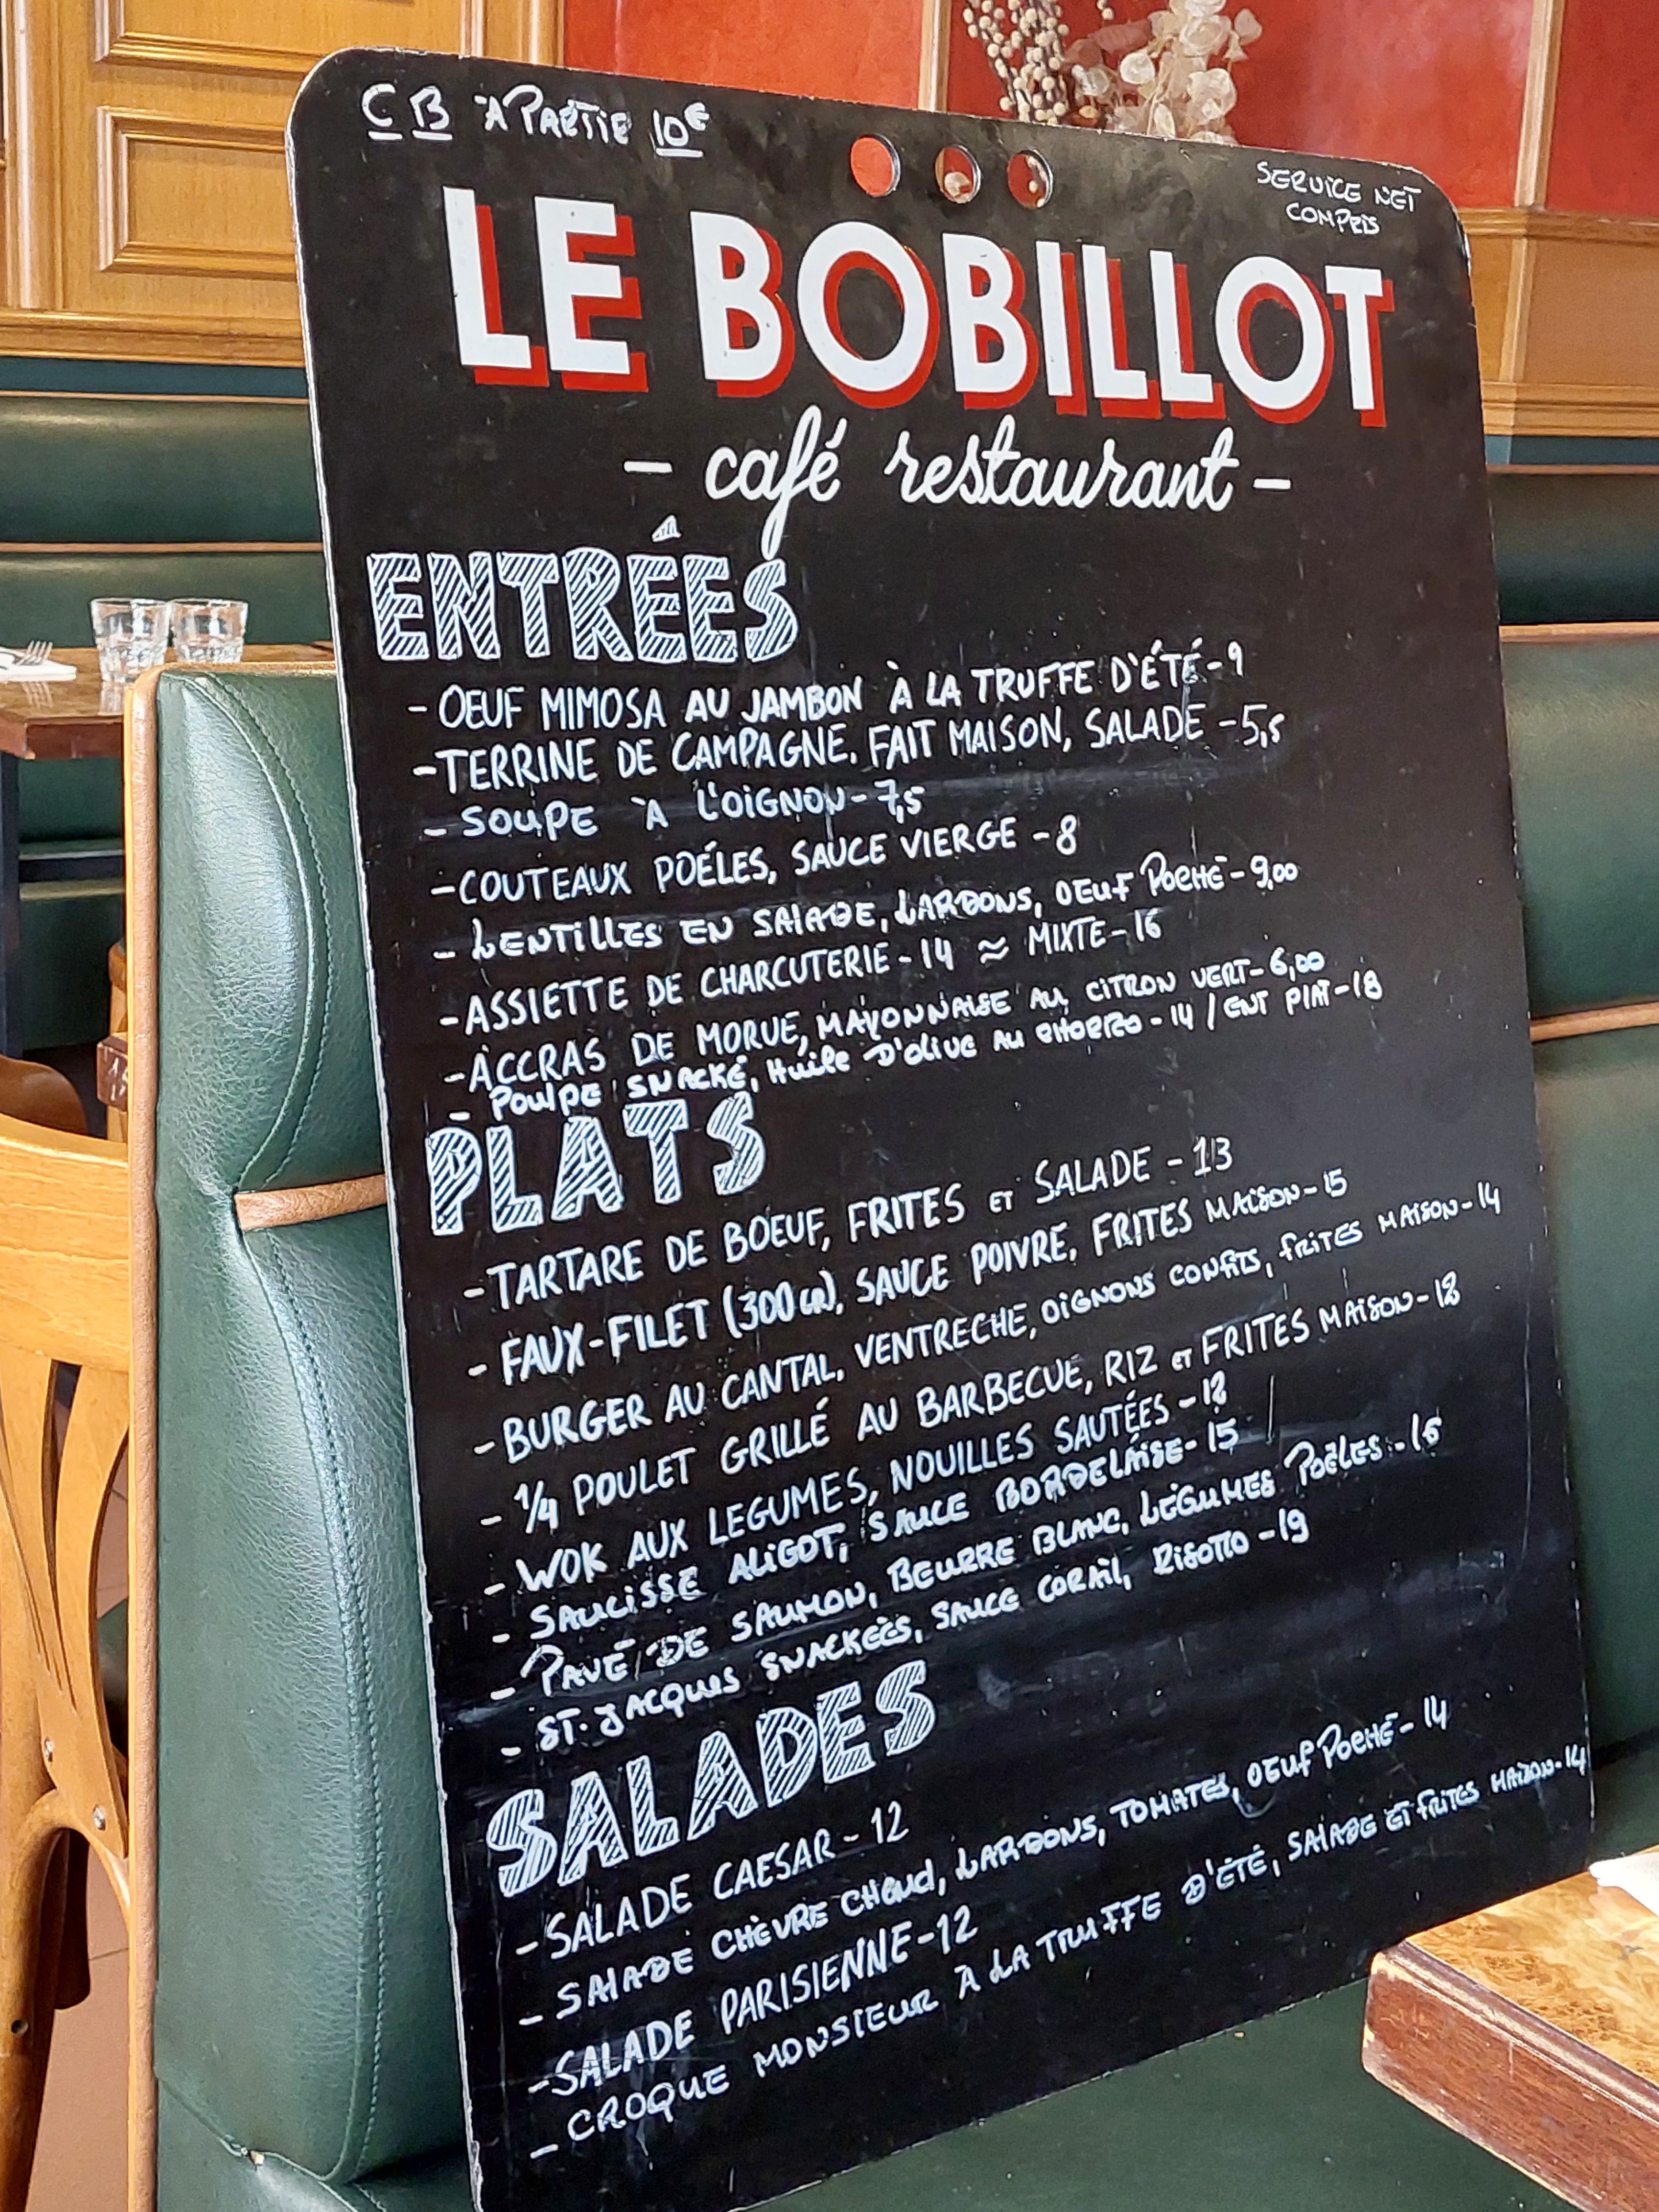 CB À PARTIE 10€
SERVICE NET
COMPRIS
LE BOBILLOT
- café restaurant -
ENTRÉES
- OEUF MIMOSA AU JAMBON À LA TRUFFE D'ÉTÉ - 9
- TERRINE DE CAMPAGNE, FAIT MAISON, SALADE - 5,5
- SOUPE À L'OIGNON - 7,5
- COUTEAUX POÉLES, SAUCE VIERGE - 8
- LENTILLES EN SALADE, LARDONS, OEUF POCHÉ - 9,00
- ASSIETTE DE CHARCUTERIE - 14 ≈ MIXTE - 16
- ACCRAS DE MORUE, MAYONNAISE AU CITRON VERT - 6,00
- POULPE SNACKÉ, HUILE D'OLIVE AU CHORRO - 14 / ENT PLAT - 18
PLATS
- TARTARE DE BOEUF, FRITES ET SALADE - 13
- FAUX-FILET (300GR), SAUCE POIVRE, FRITES MAISON - 15
- BURGER AU CANTAL, VENTRECHE, OIGNONS CONFITS, FRITES MAISON - 14
- 1/4 POULET GRILLÉ AU BARBECUE, RIZ ET FRITES MAISON - 12
- WOK AUX LEGUMES, NOUILLES SAUTÉES - 12
- SAUCISSE ALIGOT, SAUCE BORDELAISE - 15
- PAVÉ DE SAUMON, BEURRE BLANC, LÉGUMES POËLES - 16
- ST. JACQUES SNACKEÉS, SAUCE CORAIL, RISOTTO - 19
SALADES
- SALADE CAESAR - 12
- SALADE CHÈVRE CHAUD, LARDONS, TOMATES, OEUF POCHÉ - 14
- SALADE PARISIENNE - 12
- CROQUE MONSIEUR À LA TRUFFE D'ÉTÉ, SALADE ET FRITES MAISON - 14